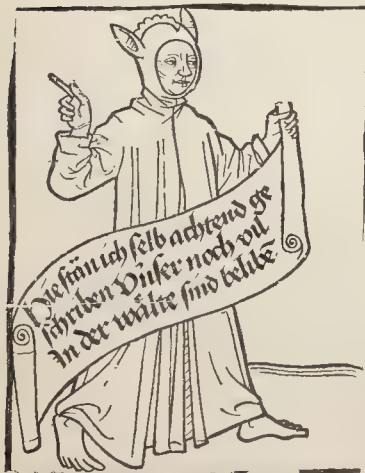 Hie stän ich selb achtend ge
schriben Vnser noch vil
In der wälte sind belibē